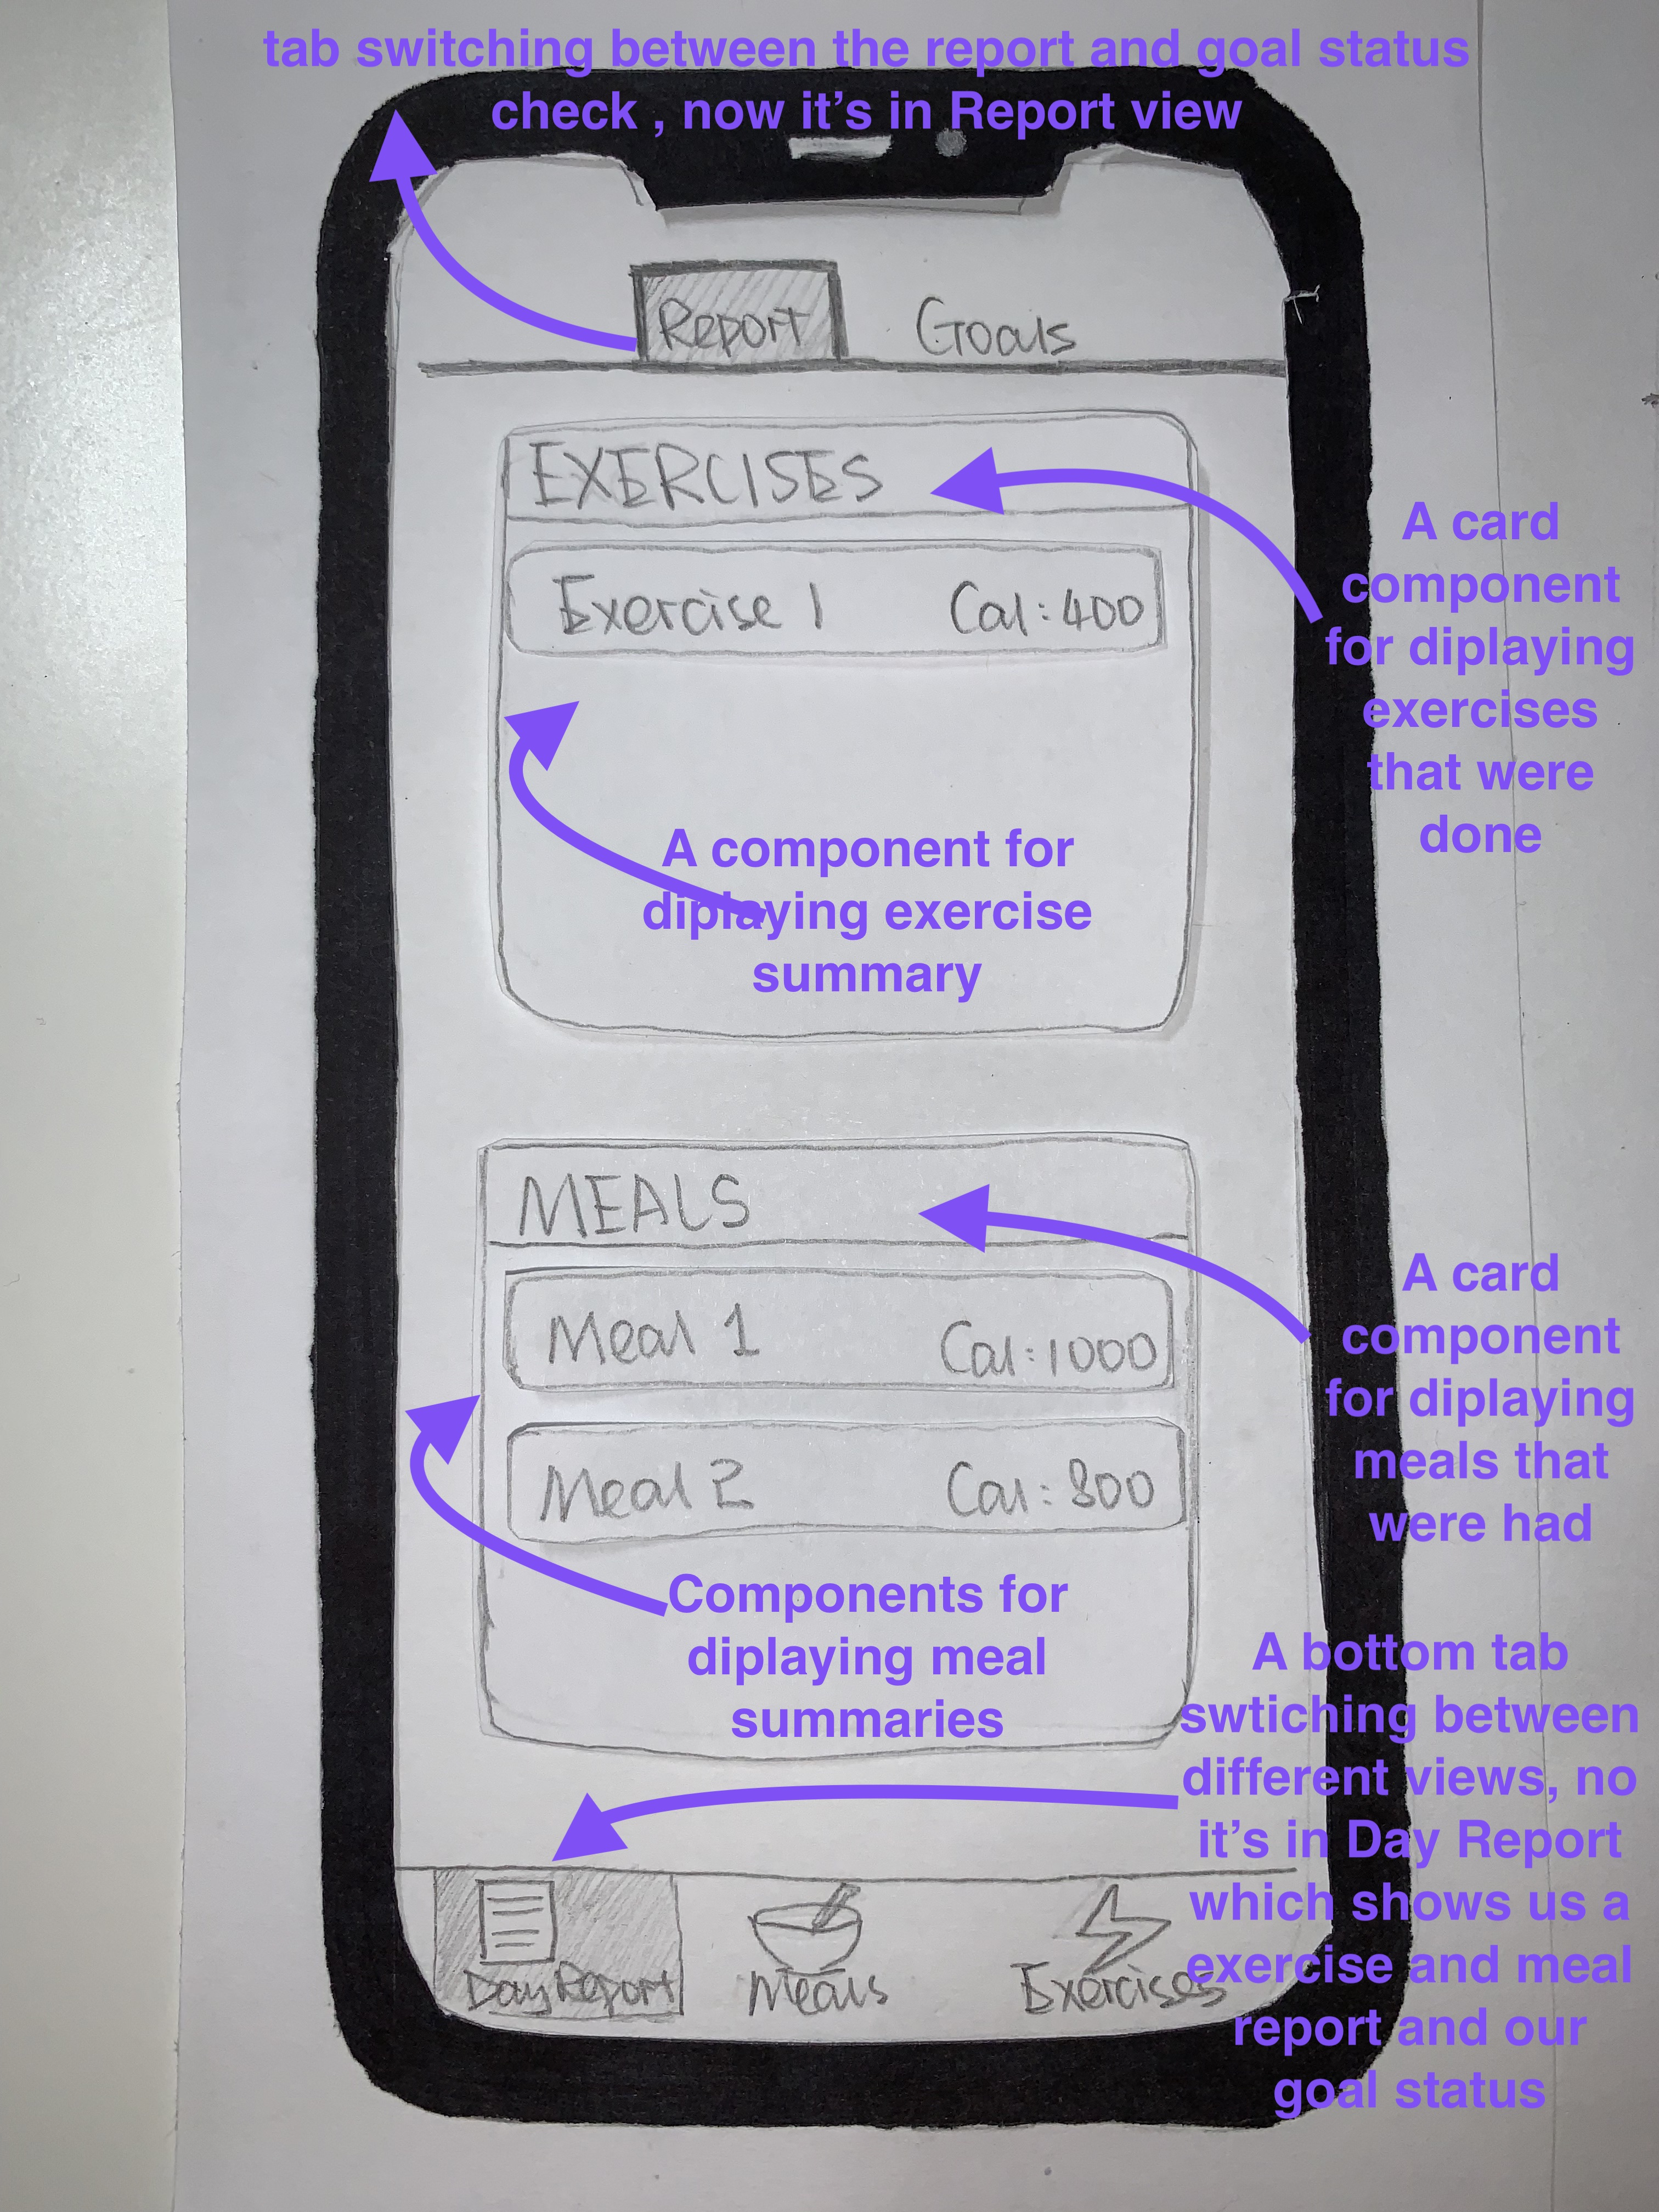 tab switching between the report and goal status
check , now it’s in Report view
Report
Goals
EXERCISES
Exercise 1
Cal:400
A card
component
for diplaying
exercises
that were
done
A component for
diplaying exercise
summary
MEALS
Meal 1
Cal:1000
Meal 2
Cal:800
A card
component
for diplaying
meals that
were had
Components for
diplaying meal
summaries
A bottom tab
swtiching between
different views, no
it’s in Day Report
which shows us a
exercise and meal
report and our
goal status
Day Report
Meals
Exercises